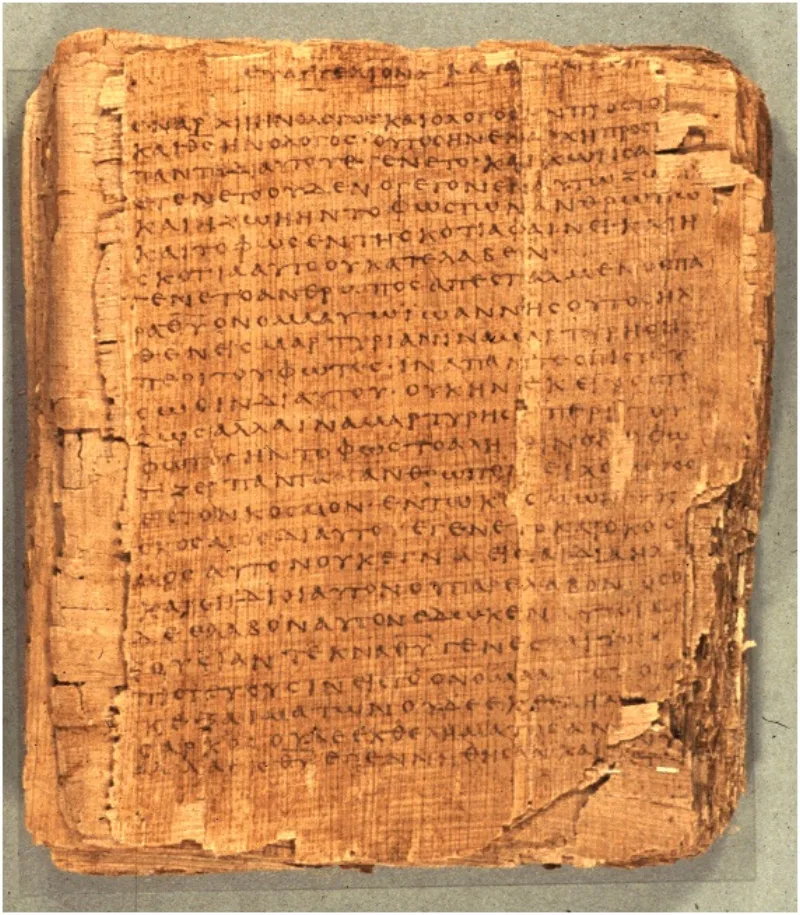 ΕΥΑΓΓΕΛΙΟΝ ΚΑΤΑ
ΕΝΑΡΧΗΗΝΟΛΟΓΟϹΚΑΙΟΛΟΓΟϹΗΝΠΡΟϹΤΟ
ΚΑΙΘϹΗΝΟΛΟΓΟϹ·ΟΥΤΟϹΗΝΕΝΑΡΧΗΠΡΟϹΤ
ΠΑΝΤΑΔΙΑΥΤΟΥΕΓΕΝΕΤΟ·ΚΑΙΧΩΡΙϹΑ
ΕΓΕΝΕΤΟΟΥΔΕΝΟΓΕΓΟΝΕΝΕΝΑΥΤΩΖΩ
ΚΑΙΗΖΩΗΗΝΤΟΦΩϹΤΩΝΑΝΘΡΩΠΩ
ΚΑΙΤΟΦΩϹΕΝΤΗϹΚΟΤΙΑΦΑΙΝΕΙ·ΚΑΙΗ
ϹΚΟΤΙΑΑΥΤΟΟΥΚΑΤΕΛΑΒΕΝ·
ΕΓΕΝΕΤΟΑΝΘΡΩΠΟϹΑΠΕϹΤΑΛΜΕΝΟϹΠΑ
ΡΑΘΥΟΝΟΜΑΑΥΤΩΙΩΑΝΝΗϹΟΥΤΟϹΗΛ
ΘΕΝΕΙϹΜΑΡΤΥΡΙΑΝΙΝΑΜΑΡΤΥΡΗϹΗ
ΠΕΡΙΤΟΥΦΩΤΟϹ·ΙΝΑΠΑΝΤΕϹΠΙϹΤΕΥ
ϹΩϹΙΝΔΙΑΥΤΟΥ·ΟΥΚΗΝΕΚΕΙΝΟϹΤΟ
ΦΩϹΑΛΛΑΙΝΑΜΑΡΤΥΡΗϹΗΠΕΡΙΤΟΥ
ΦΩΤΟϹΗΝΤΟΦΩϹΤΟΑΛΗΘΙΝΟΝΟΦΩ
ΤΙΖΕΙΠΑΝΤΑΑΝΘΡΩΠΟΝΕΡΧΟΜΕΝΟΝ
ΕΙϹΤΟΝΚΟϹΜΟΝ·ΕΝΤΩΚΟϹΜΩΗΝ
ΟΚΟϹΜΟϹΔΙΑΥΤΟΥΕΓΕΝΕΤΟΚΑΙΟΚΟϹ
ΜΟϹΑΥΤΟΝΟΥΚΕΓΝΩΕΙϹΤΑΙΔΙΑΗΛ
ΚΑΙΟΙΙΔΙΟΙΑΥΤΟΝΟΥΠΑΡΕΛΑΒΟΝ·ΟϹΟΙ
ΔΕΕΛΑΒΟΝΑΥΤΟΝΕΔΩΚΕΝΑΥΤΟΙϹΕ
ΞΟΥϹΙΑΝΤΕΚΝΑΘΥΓΕΝΕϹΘΑΙΤΟΙϹ
ΠΙϹΤΕΥΟΥϹΙΝΕΙϹΤΟΟΝΟΜΑΑΥΤΟΥ
ΚΕΞΑΙΜΑΤΩΝΟΥΔΕΕΚΘΕΛΗΜΑ
ϹΑΡΚΟϹΟΥΔΕΕΚΘΕΛΗΜΑΤΟϹΑΝ
ΑΛΛΑΕΚΘΥΕΓΕΝΝΗΘΗϹΑΝΚΑΙ